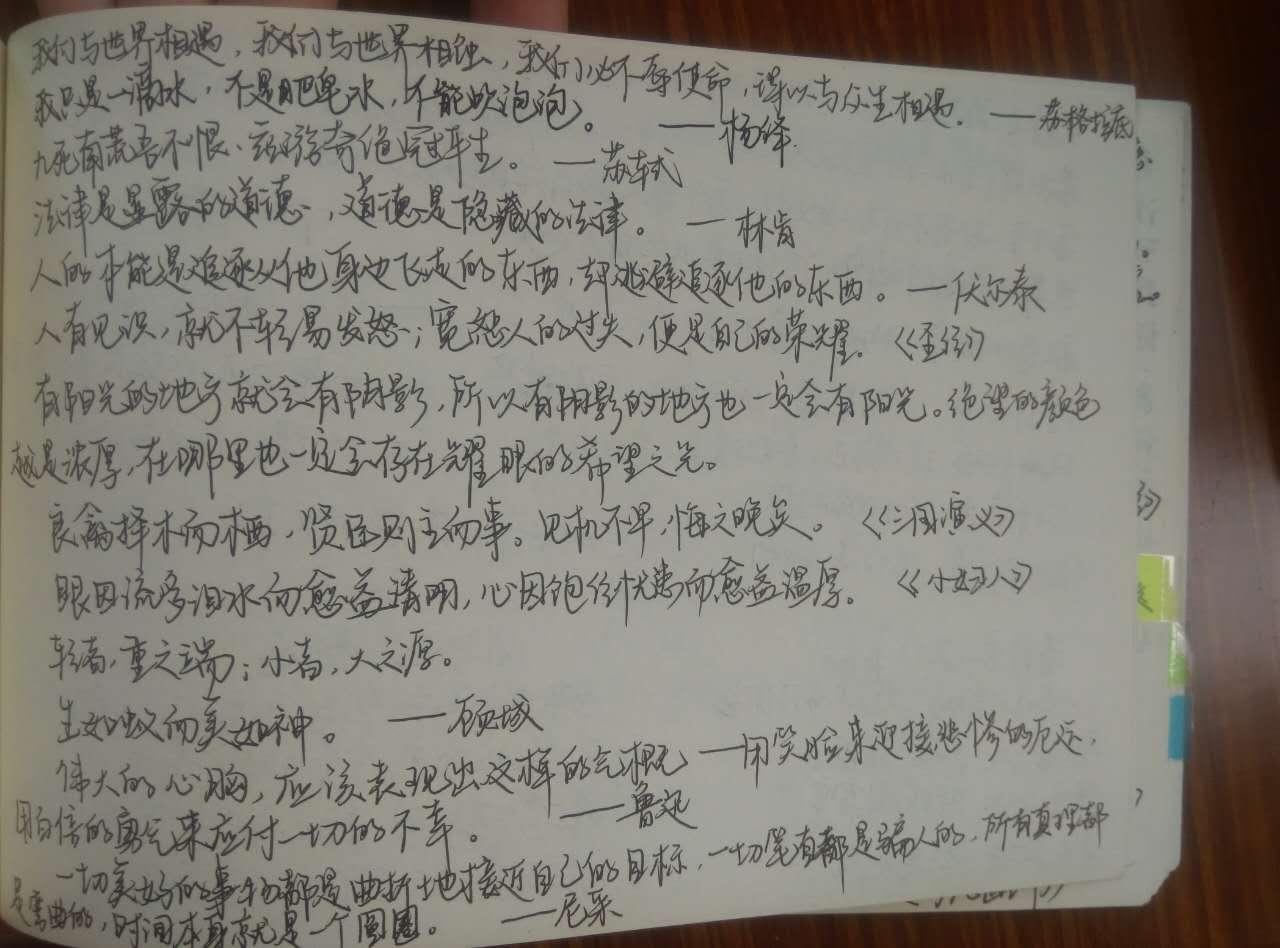 我们与世界相遇，我们与世界相蚀，我们必不辱使命，得以与众生相遇。——苏格拉底
我只是一滴水，不是肥皂水，不能吹泡泡。——杨绛
九死南荒吾不恨、兹游奇绝冠平生。——苏轼
法律是显露的道德，道德是隐藏的法律。——林肯
人的本能是追逐从他身边飞走的东西，却逃避追逐他的东西。——伏尔泰
人有见识，就不轻易发怒；宽恕人的过失，便是自己的荣耀。《圣经》
有阳光的地方就会有阴影，所以有阴影的地方也一定会有阳光。绝望的颜色
越是浓厚，在哪里也一定会存在耀眼的希望之光。
良禽择木而栖，贤臣则主而事。见机不早，悔之晚矣。《三国演义》
眼因流多泪水而愈益清明，心因饱经忧患而愈益温厚。《小妇人》
轻者，重之端；小者，大之源。
生如蚁而美如神。——顾城
伟大的心胸，应该表现出这样的气概——用笑脸来迎接悲惨的厄运，
用百倍的勇气来应付一切的不幸。——鲁迅
一切美好的事物都是曲折地接近自己的目标，一切笔直都是骗人的，所有真理都
是弯曲的，时间本身就是一个圆圈。——尼采